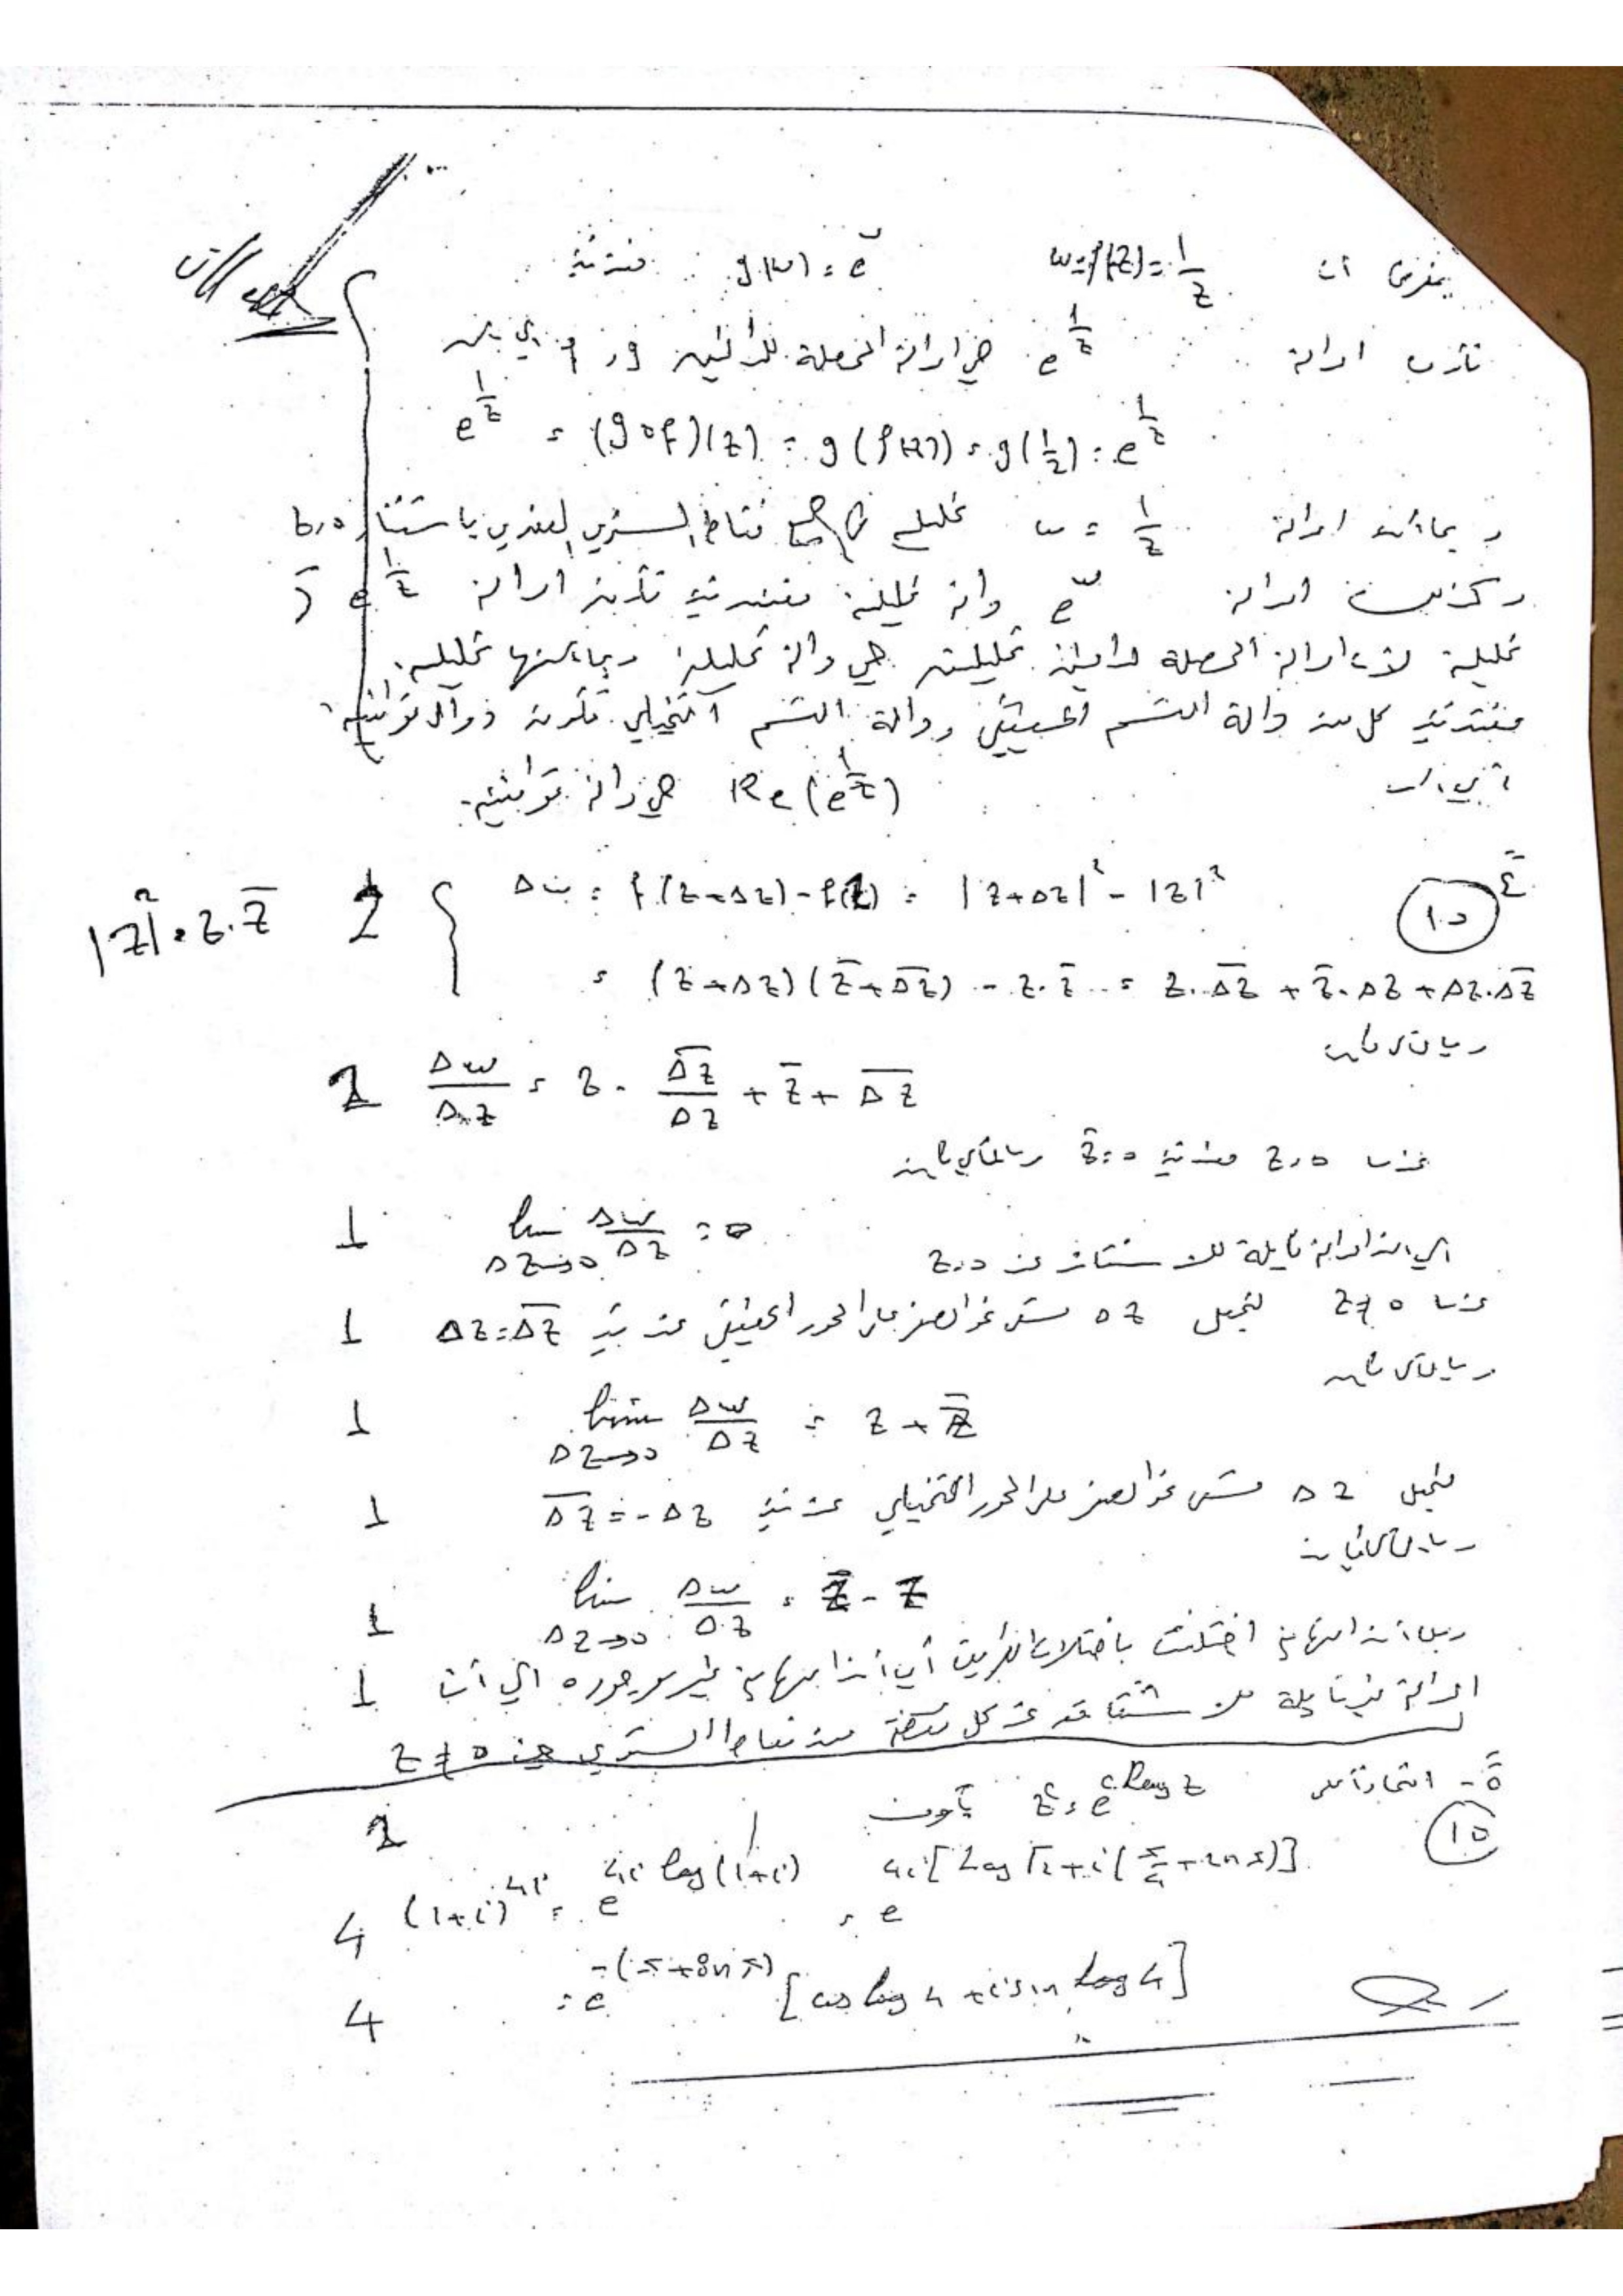 بفرض أن w=f(z)=1/z g(w)=e^w عندئذ
تكون الدالة e^{1/z} هي الدالة المحصلة للدالتين g و f أي أن
e^{1/z} = (g∘f)(z) = g(f(z)) = g(1/z) = e^{1/z}
و بما أن الدالة w = 1/z تحليلية في جميع نقاط المستوي العقدي باستثناء z=0
و كذلك الدالة e^w دالة تحليلية فعندئذ تكون الدالة e^{1/z}
تحليلية لأن الدالة المحصلة لدالتين تحليليتين هي دالة تحليلية وبما أنها تحليلية
فعندئذ كل من دالة القسم الحقيقي ودالة القسم التخيلي تكون دوال توافقية
أي أن Re(e^{1/z}) هي دالة توافقية.
٤- (10) Δw = f(z+Δz)-f(z) = |z+Δz|² - |z|² 2 |z|² = z.z̄
= (z+Δz)(z̄+Δz̄) - z.z̄ = z.Δz̄ + z̄.Δz + Δz.Δz̄
وبالتالي فإن
2 Δw/Δz = z . Δz̄/Δz + z̄ + Δz̄
عندما z=0 عندئذ z̄=0 وبالتالي فإن
1 lim_{Δz→0} Δw/Δz = 0
أي أن الدالة قابلة للاشتقاق عند z=0
عندما z≠0 لنجعل Δz تسعى نحو الصفر على المحور الحقيقي عندئذ Δz=Δz̄ 1
وبالتالي فإن
1 lim_{Δz→0} Δw/Δz = z + z̄
لنجعل Δz تسعى نحو الصفر على المحور التخيلي عندئذ Δz̄ = -Δz 1
وبالتالي فإن
1 lim_{Δz→0} Δw/Δz = z̄ - z
وبما أن النهاية اختلفت باختلاف الطريق أي أن النهاية غير موجودة أي أن 1
الدالة غير قابلة للاشتقاق عند كل نقطة من نقاط المستوي حيث z≠0
٥- اعتماداً على z^c = e^{c Log z} يكون 2
(10)
4 (1+i)^{4i} = e^{4i log(1+i)} = e^{4i[Log √2+i(π/4+2nπ)]}
4 = e^{-(π+8nπ)} [cos log 4 + i sin log 4]